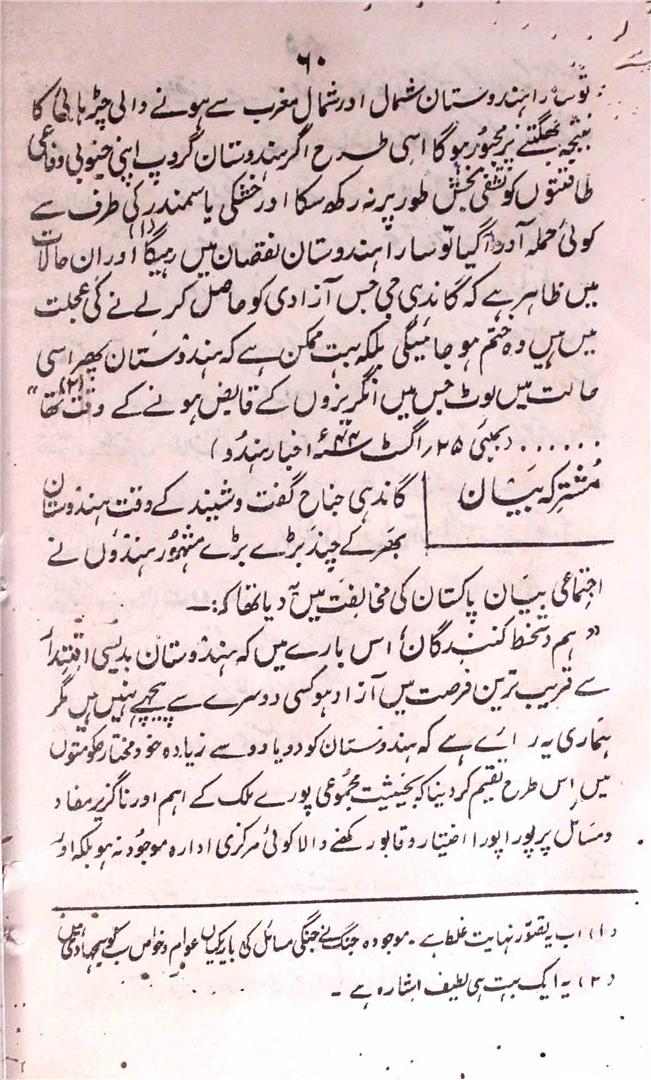 ۶۰
تو سارا ہندوستان شمال اور شمال مغرب سے ہونے والی چڑہائی کا
نتیجہ بھگتنے پر مجبور ہوگا اسی طرح اگر ہندوستان گروپ اپنی جنوبی دفاعی
طاقتوں کو تشفی بخش طور پر نہ رکھ سکا اور خشکی یا سمندر کی طرف سے
کوئی حملہ آور آگیا تو سارا ہندوستان نقصان میں رہیگا (۱) اور ان حالات
میں ظاہر ہے کہ گاندہی جی جس آزادی کو حاصل کرلے نے کی عجلت
میں ہیں وہ ختم ہو جائیگی بلکہ بہت ممکن ہے کہ ہندوستان پھر اسی
حالت میں لوٹ جس میں انگریزوں کے قابض ہونے کے وقت تھا (۲)“
...... (بمبئی ۲۵ راگست ۴۴ءسنہ اخبار ہندو)
مُشترکہ بَیَان
گاندہی جناح گفت و شیند کے وقت ہندوستان
بھر کے چند بڑے بڑے مشہور ہندؤں نے
اجتماعی بیان پاکستان کی مخالفت میں آ دیا تھا کہ:۔
”ہم دستخط کنندگان اس بارے میں کہ ہندوستان بدیسی اقتدا
سے قریب ترین فرصت میں آزاد ہو کسی دوسرے سے پیچھے نہیں ہیں مگر
ہماری یہ رائے ہے کہ ہندوستان کو دو یا دو سے زیادہ خود مختار حکومتوں
میں اس طرح تقسیم کر دینا کہ بحیثیت مجموعی پورے ملک کے اہم اور ناگزیر مفاد
و مسائل پر پورا پورا اختیار و قابو رکھنے والا کوئی مرکزی ادارہ موجود نہ ہو بلکہ اور
(۱) اب یہ تصور نہایت غلط ہے۔ موجودہ جنگ نے جنگی مسائل کی باریکیاں عوام و خواص سب کو سمجھا دی ہیں
(۲) یہ ایک بہت ہی لطیف اشارہ ہے۔